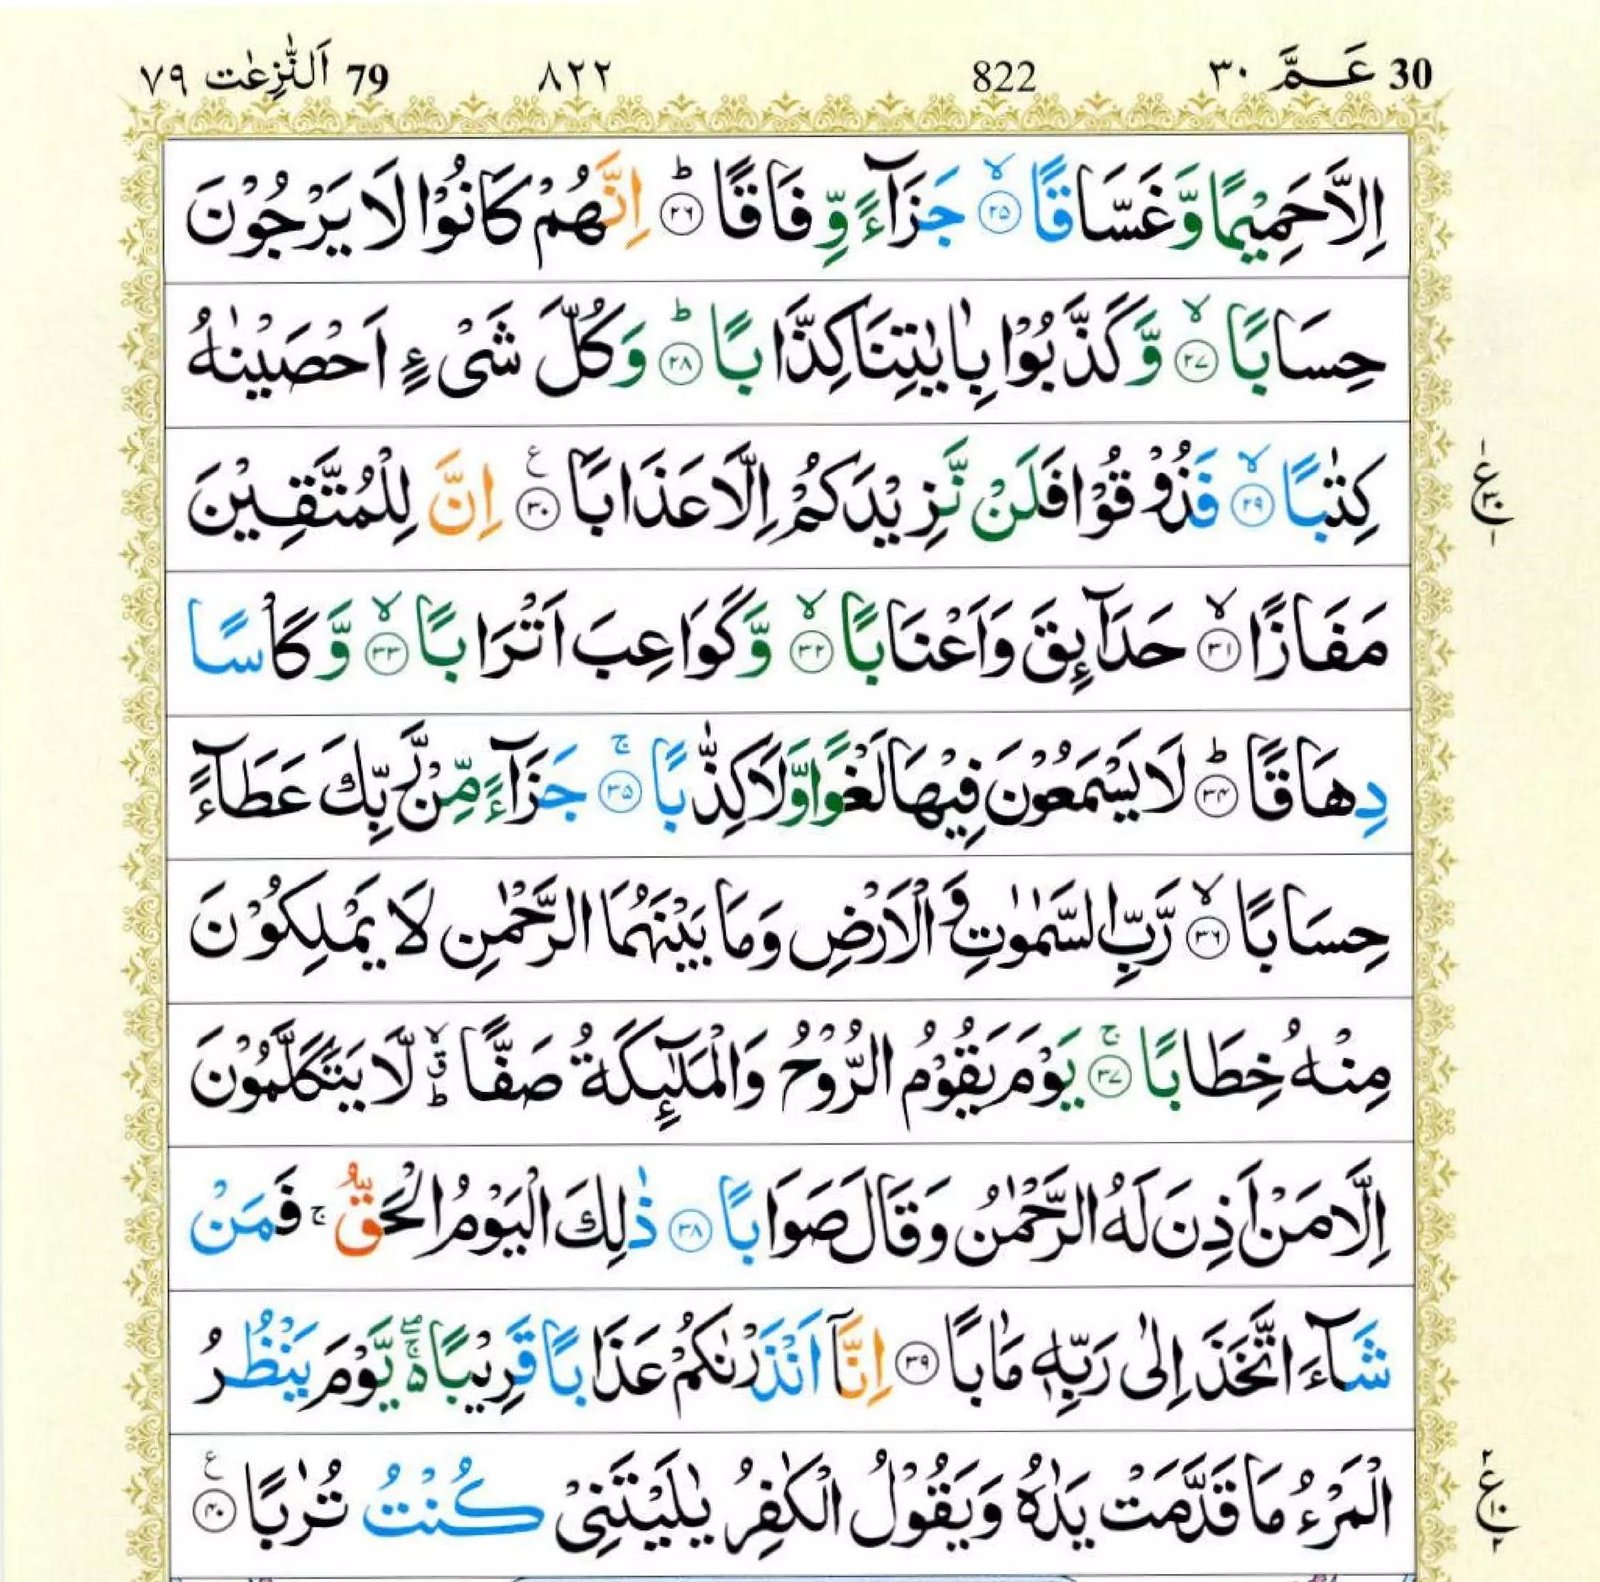 30 عَـمَّ ٣٠ 822 ٨٢٢ 79 اَلنّٰزِعٰت ٧٩
اِلَّا حَمِيْمًا وَّغَسَّاقًا ۙ‏﴿۲۵﴾ جَزَآءً وِّفَاقًا ؕ‏﴿۲۶﴾ اِنَّهُمْ كَانُوْا لَا يَرْجُوْنَ
حِسَابًا ۙ‏﴿۲۷﴾ وَّكَذَّبُوْا بِاٰيٰتِنَا كِذَّابًا ؕ‏﴿۲۸﴾ وَكُلَّ شَىْءٍ اَحْصَيْنٰهُ
كِتٰبًا ۙ‏﴿۲۹﴾ فَذُوْقُوْا فَلَنْ نَّزِيْدَكُمْ اِلَّا عَذَابًا ﴿۳۰﴾ ع اِنَّ لِلْمُتَّقِيْنَ
ع ٣٠ ١
مَفَازًا ۙ‏﴿۳۱﴾ حَدَآئِقَ وَاَعْنَابًا ۙ‏﴿۳۲﴾ وَّكَوَاعِبَ اَتْرَابًا ۙ‏﴿۳۳﴾ وَّكَاْسًا
دِهَاقًا ؕ‏﴿۳۴﴾ لَا يَسْمَعُوْنَ فِيْهَا لَغْوًا وَّلَا كِذّٰبًا ۚ‏﴿۳۵﴾ جَزَآءً مِّنْ رَّبِّكَ عَطَآءً
حِسَابًا ۙ‏﴿۳۶﴾ رَّبِّ السَّمٰوٰتِ وَالْاَرْضِ وَمَا بَيْنَهُمَا الرَّحْمٰنِ لَا يَمْلِكُوْنَ
مِنْهُ خِطَابًا ۚ‏﴿۳۷﴾ يَوْمَ يَقُوْمُ الرُّوْحُ وَالْمَلٰٓئِكَةُ صَفًّا ۙؕ لَّا يَتَكَلَّمُوْنَ
اِلَّا مَنْ اَذِنَ لَهُ الرَّحْمٰنُ وَقَالَ صَوَابًا ﴿۳۸﴾ ذٰلِكَ الْيَوْمُ الْحَقُّ ۚ فَمَنْ
شَآءَ اتَّخَذَ اِلٰى رَبِّهٖ مَاٰبًا ﴿۳۹﴾ اِنَّاۤ اَنْذَرْنٰكُمْ عَذَابًا قَرِيْبًا ۖۚ يَّوْمَ يَنْظُرُ
الْمَرْءُ مَا قَدَّمَتْ يَدٰهُ وَيَقُوْلُ الْكٰفِرُ يٰلَيْتَنِىْ كُنْتُ تُرٰبًا ﴿۴۰﴾ ع
٢ ع ١٠ ٢